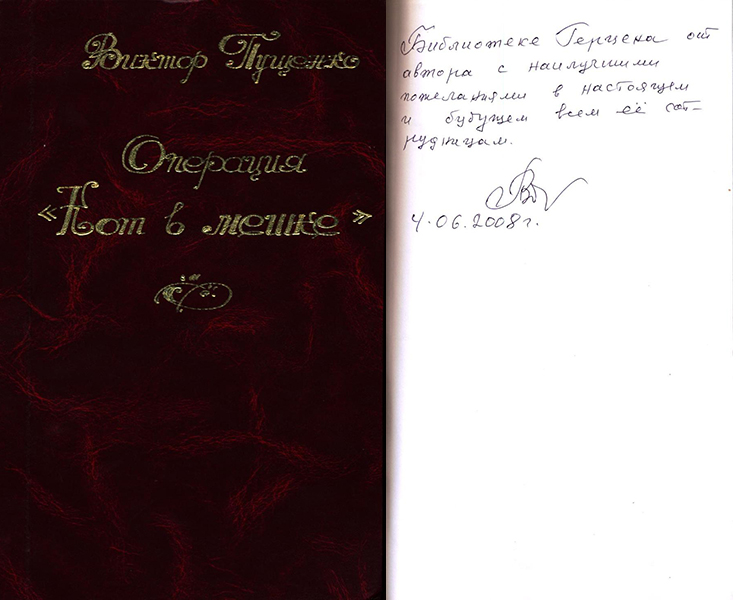 Виктор Пущенко
Операция
«Кот в мешке»
Библиотеке Герцена от
автора с наилучшими
пожеланиями в настоящем
и будущем всем её сот-
рудницам.
4.06.2008 г.